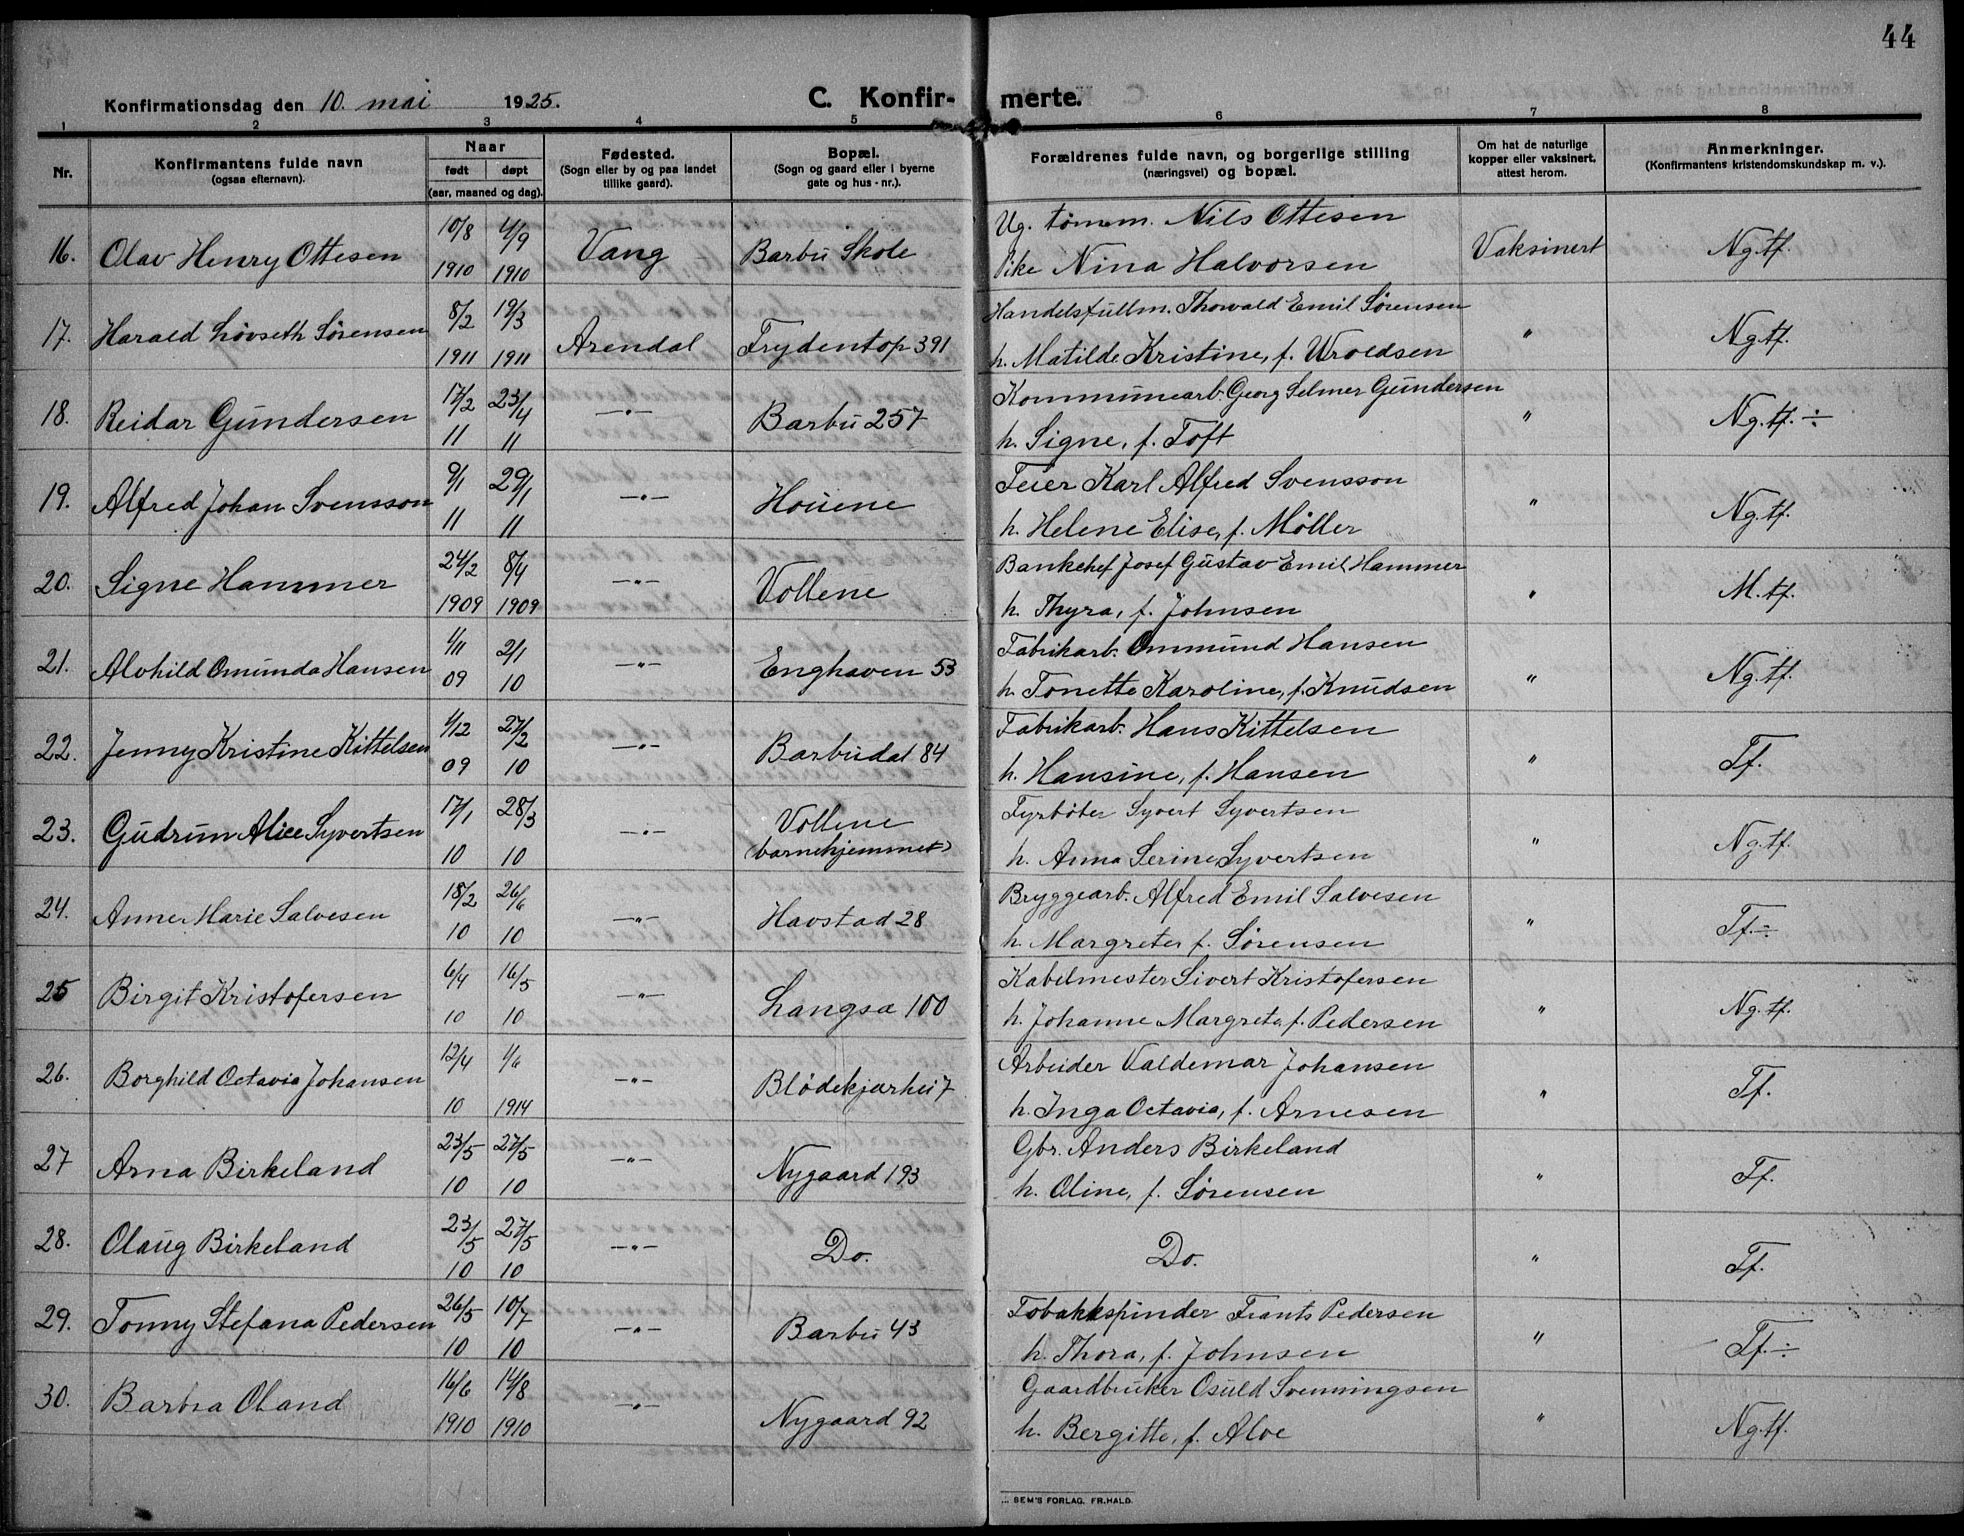 44
Konfirmationsdag den 10. mai 1925.
C. Konfirmerte.
1 2 3 4 5 6 7 8
Nr.
Konfirmantens fulde navn
(ogsaa efternavn).
Naar
født døpt
(aar, maaned og dag).
Fødested.
(Sogn eller by og paa landet
tillike gaard).
Bopæl.
(Sogn og gaard eller i byerne
gate og hus-nr.).
Forældrenes fulde navn, og borgerlige stilling
(næringsvei) og bopæl.
Om hat de naturlige
kopper eller vaksinert,
attest herom.
Anmerkninger.
(Konfirmantens kristendomskundskap m. v.).
10/8 4/9 Ug. tømm. Nils Ottesen
16. Olav Henry Ottesen Vang Barbu Skole Vaksinert Ng.tf.
1910 1910 Pike Nina Halvorsen
8/2 19/3 Handelsfullm. Thorvald Emil Sørensen
17. Harald Løvseth Sørensen Arendal Frydentop 391 " Ng.tf.
1911 1911 h. Matilde Kristine, f. Uroldsen
17/2 23/4 Kommunearb. Georg Selmer Gundersen
18. Reidar Gundersen —"— Barbu 257 " Ng.tf. ÷
11 11 h. Signe, f. Toft
9/1 29/1 Feier Karl Alfred Svensson
19. Alfred Johan Svensson —"— Houene " Ng.tf.
11 11 h. Helene Elise, f. Møller
24/2 8/4 Bankchef Josef Gustav Emil Hammer
20. Signe Hammer —"— Vollene " M.tf.
1909 1909 h. Thyra, f. Johnsen
4/11 2/1 Fabrikarb. Ommund Hansen
21. Alvhild Omunda Hansen —"— Enghaven 53 " Ng.tf.
09 10 h. Tonette Karoline, f. Knudsen
4/12 27/2 Fabrikarb. Hans Kittelsen
22. Jenny Kristine Kittelsen —"— Barbudal 84 " Tf.
09 10 h. Hansine, f. Hansen
17/1 28/3 Fyrbøter Syvert Syvertsen
23. Gudrun Alice Syvertsen —"— Vollene " Ng.tf.
(barnehjemmet)
10 10 h. Anna Serine Syvertsen
18/2 26/6 Bryggearb. Alfred Emil Salvesen
24. Anne Marie Salvesen —"— Havstad 28 " Tf. ÷
10 10 h. Margrete, f. Sørensen
6/4 16/5 Kabelmester Sivert Kristofersen
25 Birgit Kristofersen —"— Langsæ 100 " Ng.tf.
10 10 h. Johanne Margrete, f. Pedersen
12/4 4/6 Arbeider Valdemar Johansen
26. Borghild Octavia Johansen —"— Blødekjærhei 7 " Tf.
10 1914 h. Inga Octavia, f. Arnesen
23/5 27/5 Gbr. Anders Birkeland
27 Arna Birkeland —"— Nygaard 193 " Tf.
10 10 h. Oline, f. Sørensen
23/5 27/5
28. Olaug Birkeland —"— Do. Do. " Tf.
10 10
26/5 10/7 Tobakkspinder Frants Pedersen
29. Tonny Stefana Pedersen —"— Barbu 43 " Tf. ÷
10 10 h. Thora, f. Johnsen
16/6 14/8 Gaardbruker Osuld Svenningsen
30. Barbra Oland —"— Nygaard 92 " Ng.tf.
1910 1910 h. Bergitte, f. Alve
SEM'S FORLAG, FR.HALD.